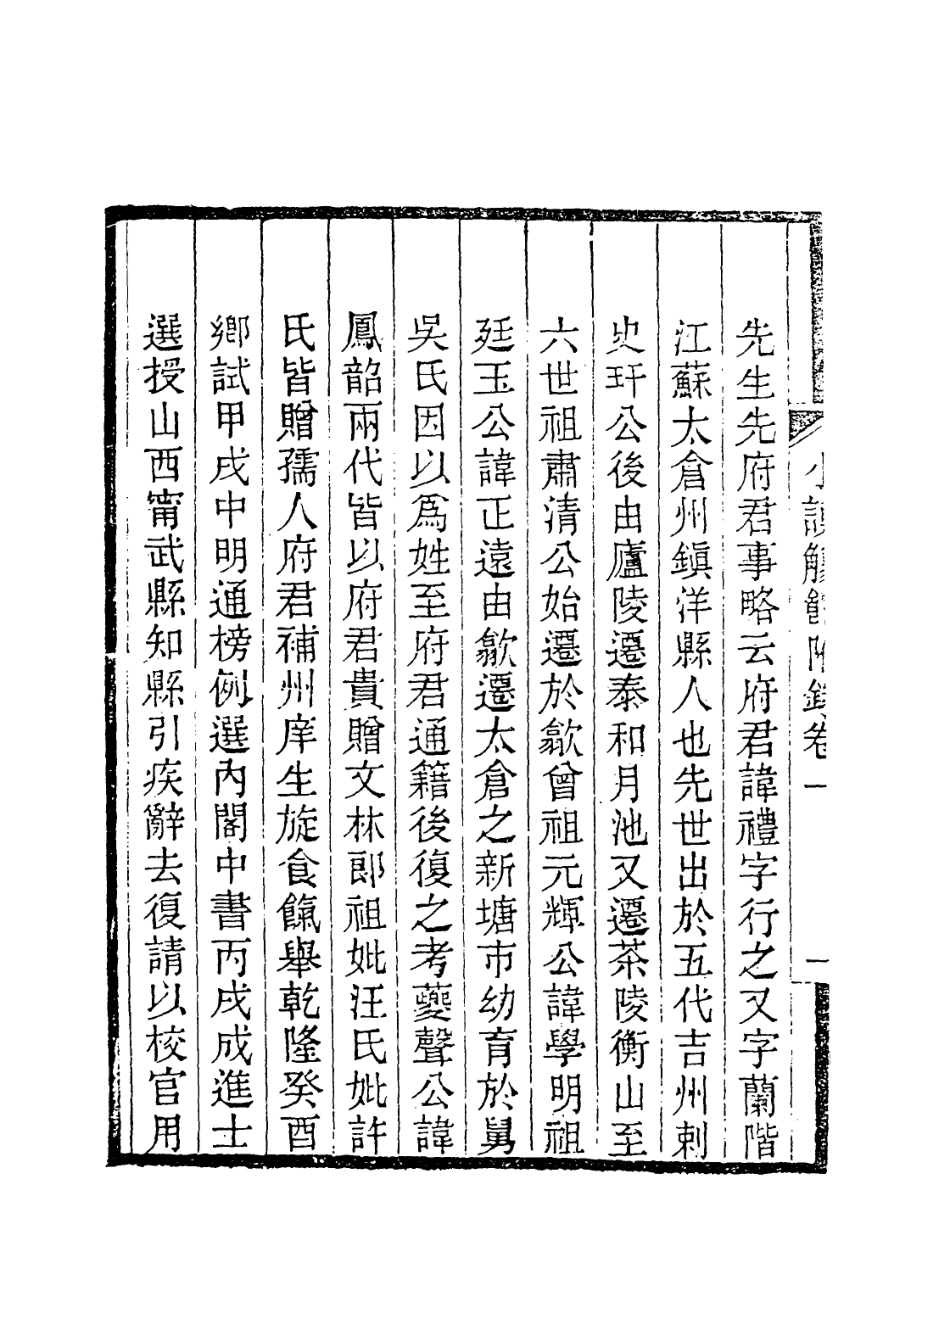 先生先府君事略云府君諱禮字行之又字蘭階
江蘇太倉州鎮洋縣人也先世出於五代吉州刺
史玕公後由廬陵遷泰和月池又遷茶陵衡山至
六世祖肅清公始遷於歙曾祖元輝公諱學明祖
廷玉公諱正遠由歙遷太倉之新塘市幼育於舅
吳氏因以爲姓至府君通籍後復之考蘷聲公諱
鳳韶兩代皆以府君貴贈文林郎祖妣汪氏妣許
氏皆贈孺人府君補州庠生旋食餼舉乾隆癸酉
鄉試甲戌中明通榜例選內閣中書丙戌成進士
選授山西甯武縣知縣引疾辭去復請以校官用
卷一
一